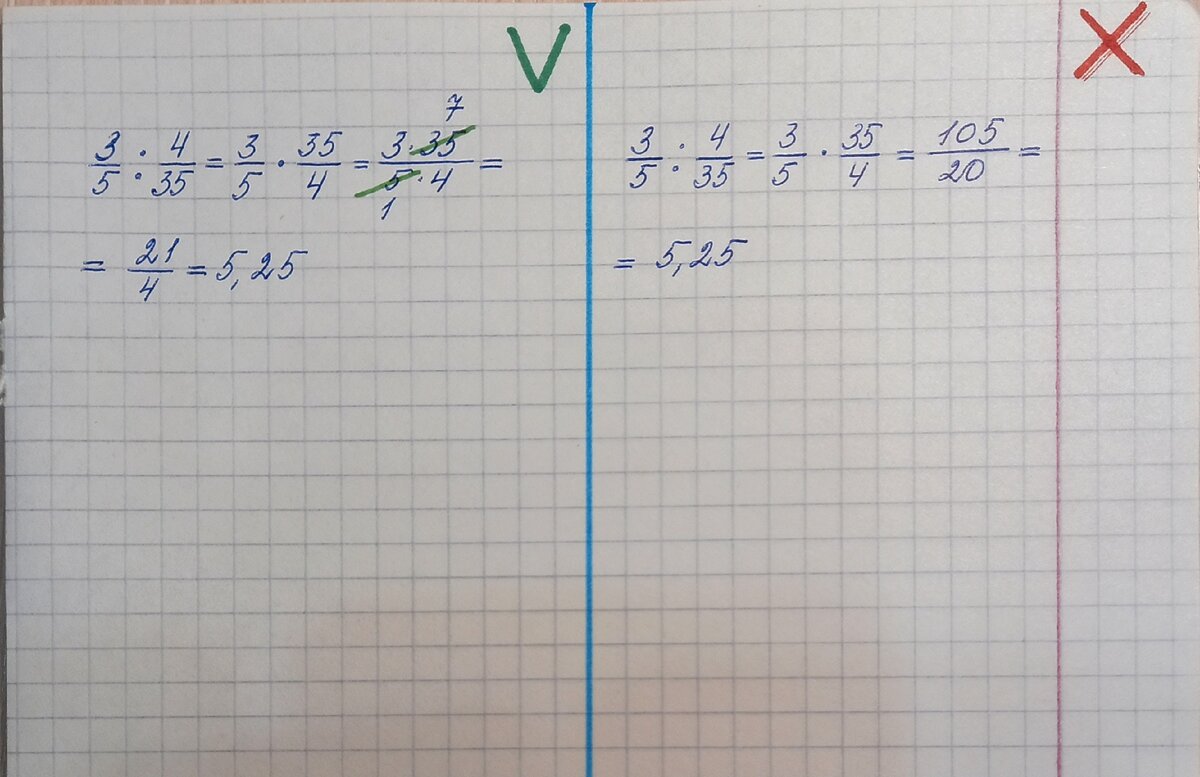 V
3/5 : 4/35 = 3/5 · 35/4 = 3·35/5·4 =
7
1
= 21/4 = 5,25
X
3/5 : 4/35 = 3/5 · 35/4 = 105/20 =
= 5,25